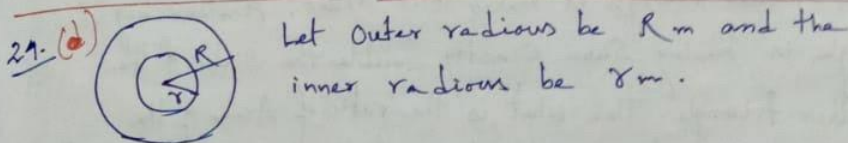 29. (d) R r Let outer radious be R m and the
inner radious be r m.